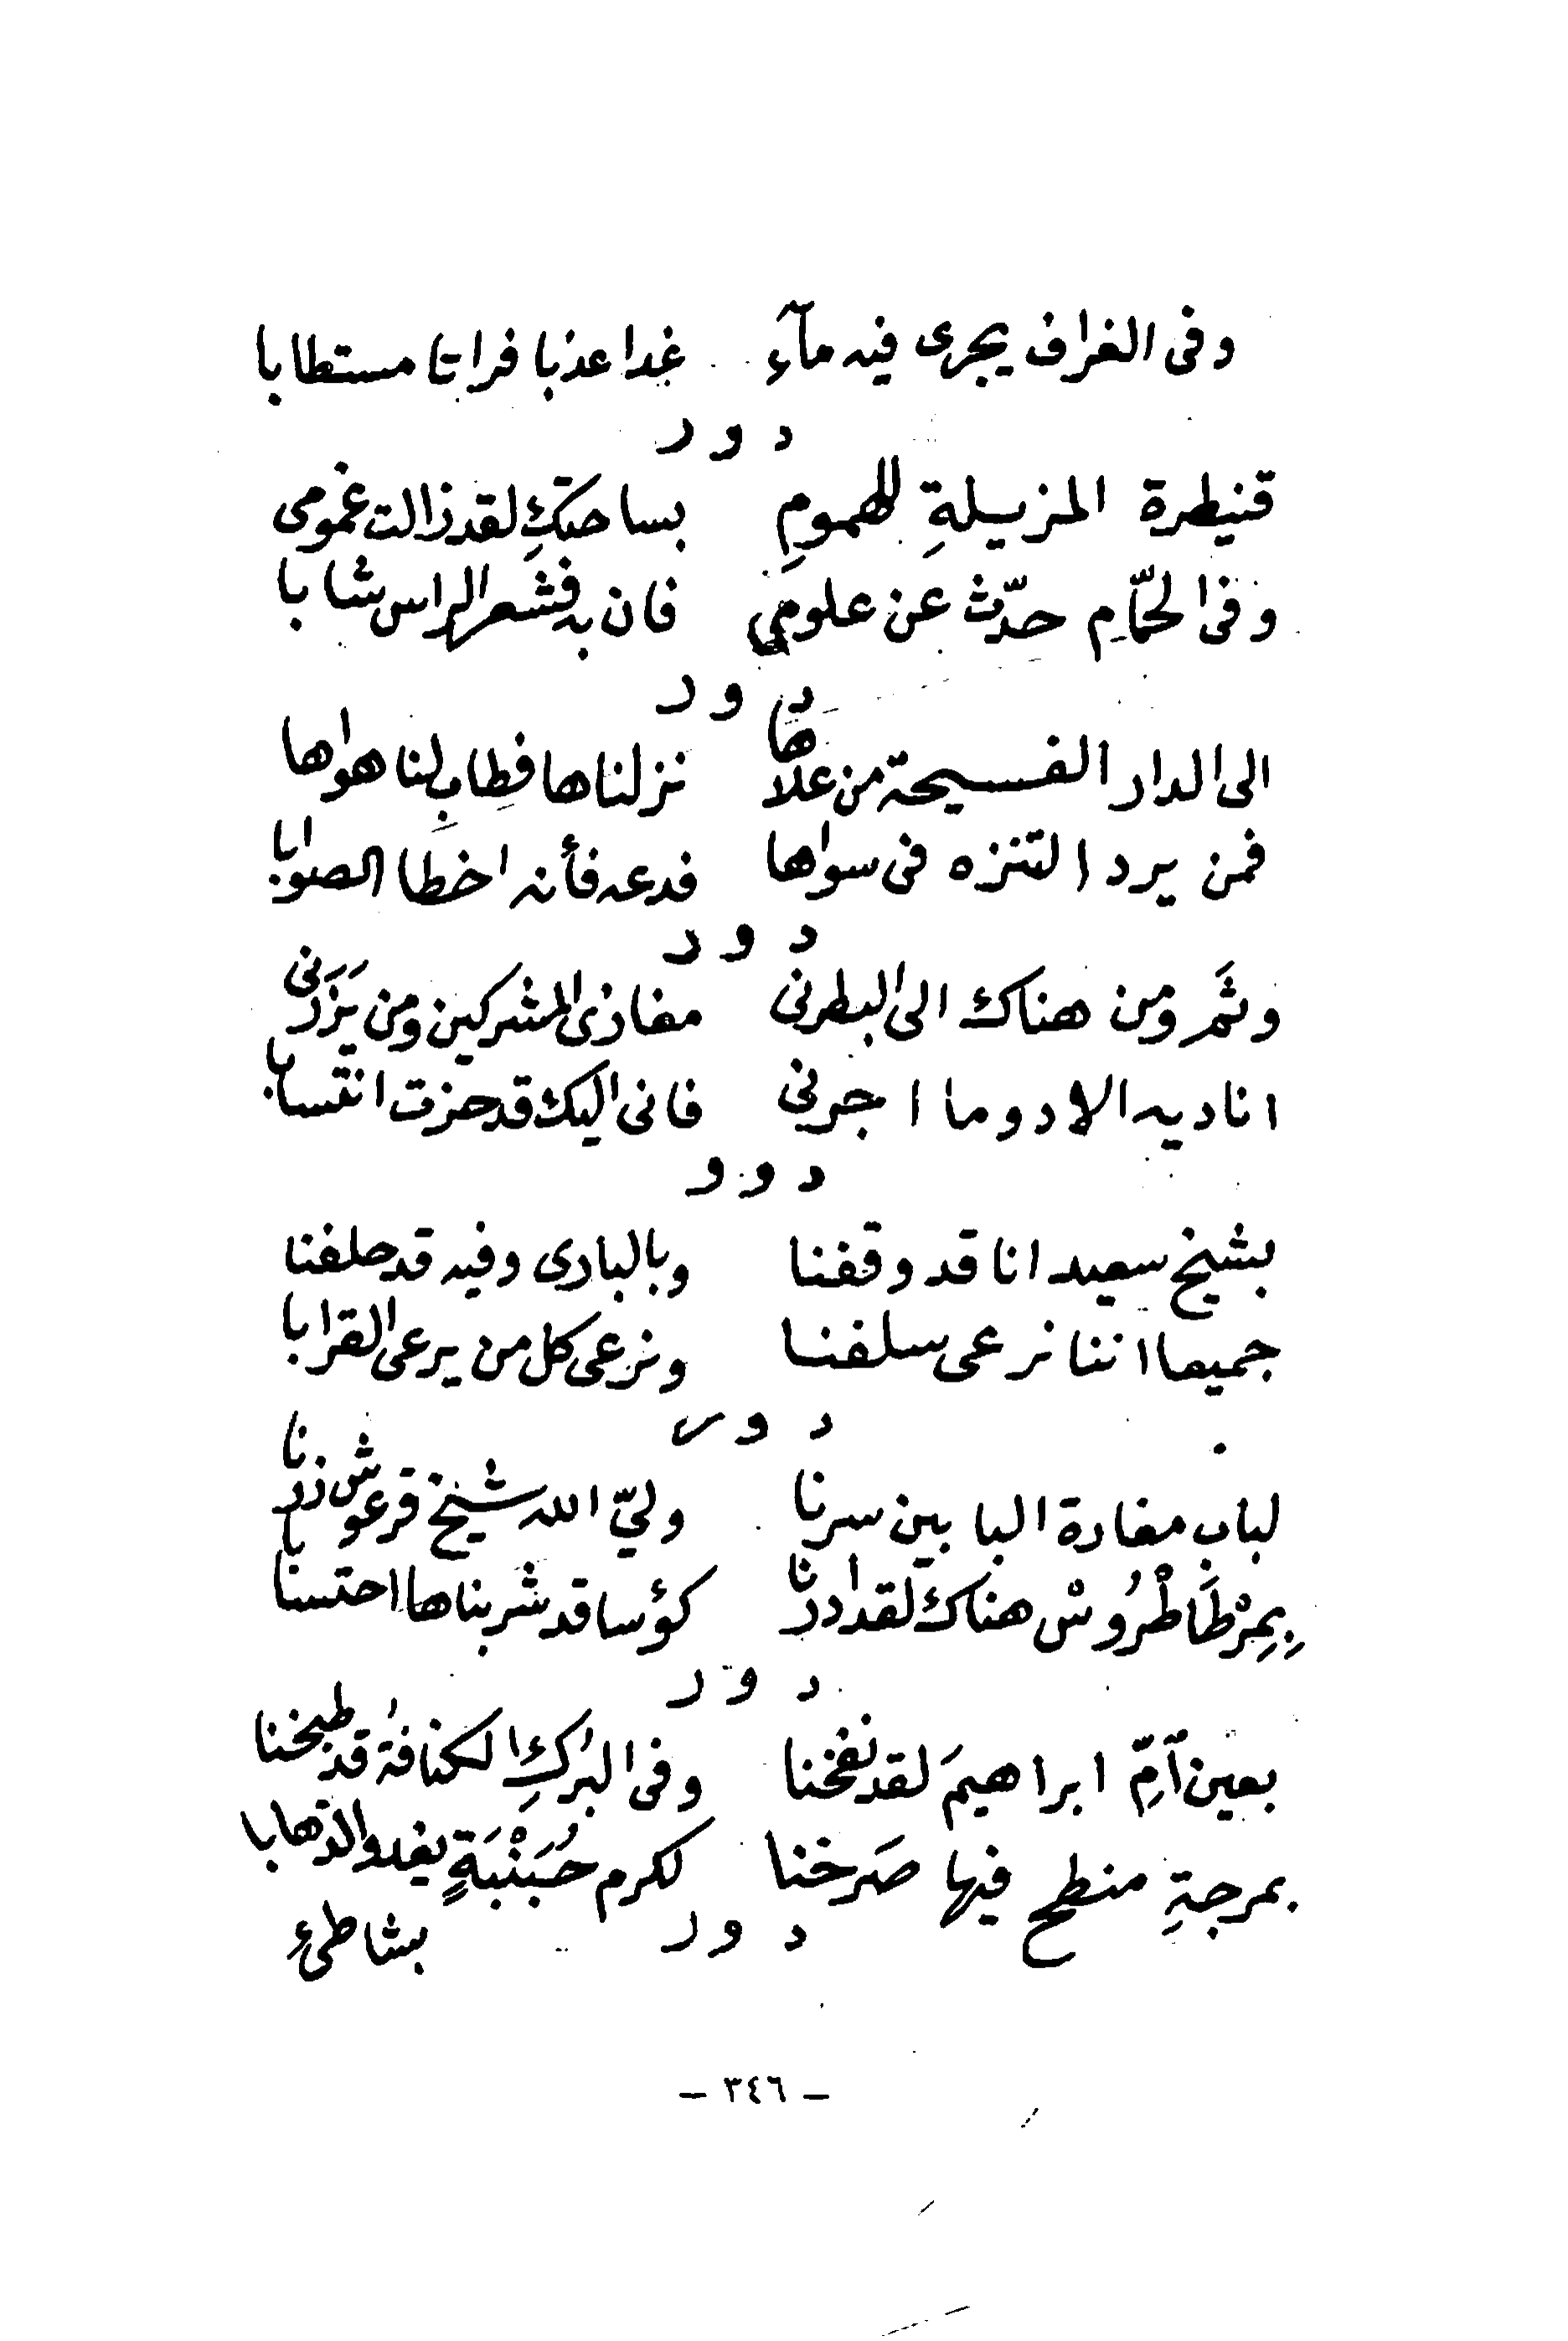 وفى الغراف يجرى فيه مآء غدا عذبا فراتا مستطابا
دور
قنيطرة المزيلةِ للهمومِ بساحتكِ لقد زالت غمومى
وفى الحمّامِ حدّث عن علومى فان به فشعر الراس شابا
دور
الى الدار الفسيحة من علاها نزلناها فطاب لنا هواها
فمن يرد التنزه فى سواها فدعه فأنه اخطا الصوابا
دور
وثَم ومن هناك الى البطرنى مغازى المشركين ومن يَزَرنى
اناديه الا دوما اجرنى فانى اليك قد حزت انتسابا
دور
بشيخ سعيد انا قد وقفنا وبالبادى وفيه قد حلفنا
جميعا اننا نرعى سلفنا ونرعى كل من يرعى القرابا
دور
لباب مغارة البابين سرنا وليّ الله شيخ قرعوش زرنا
بِمِرْطَاطْرُوسْ هناك لقد ادرنا كؤسا قد شربناها احتسابا
دور
بعين اَمِّ ابراهيمَ لقد نفخنا وفى البَركِ الكنافة قد طبخنا
بمرجةِ منطح فيها صَرخنا لكرم حُبَنْبَةٍ يغدو الذهابا
دور
بشاطىءِ
– ٣٤٦ –